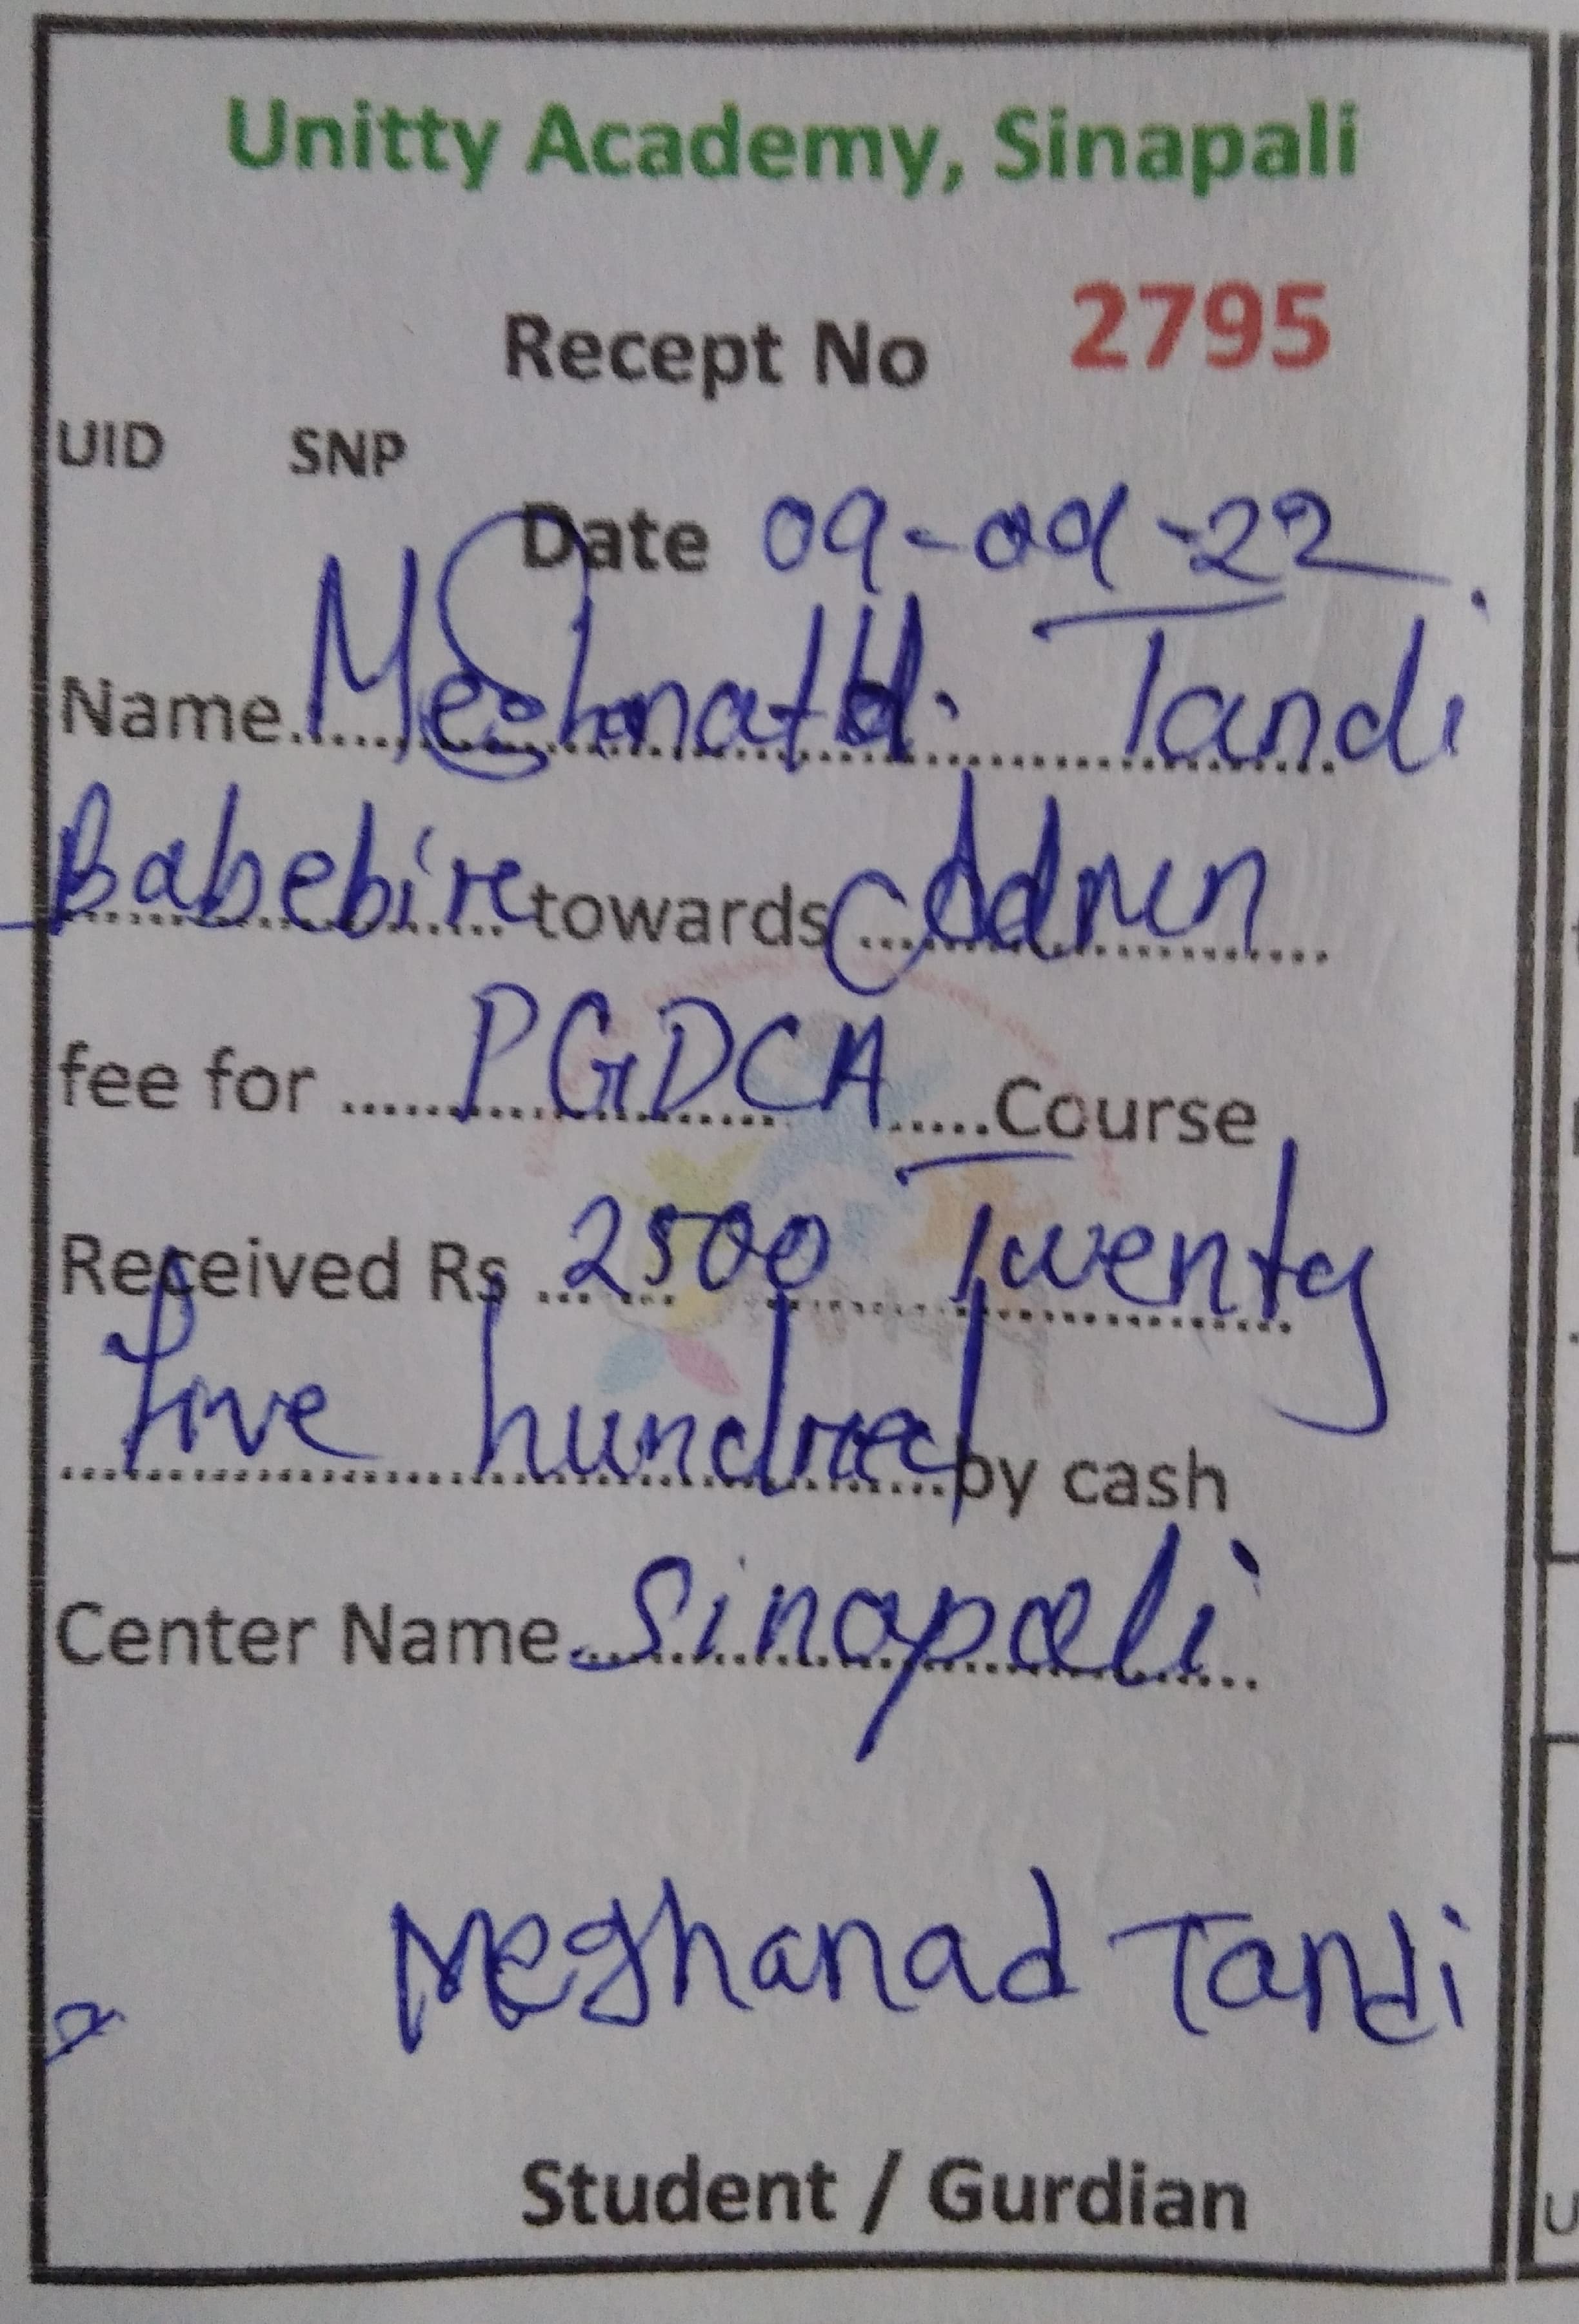 Unitty Academy, Sinapali
Recept No 2795
UID SNP
Date 09-09-22
Name Meghnath. Tandi
Babebire towards Addmin
fee for PGDCA Course
Received Rs 2500 Twenty
five hundred by cash
Center Name Sinapali
Meghanad Tandi
Student / Gurdian